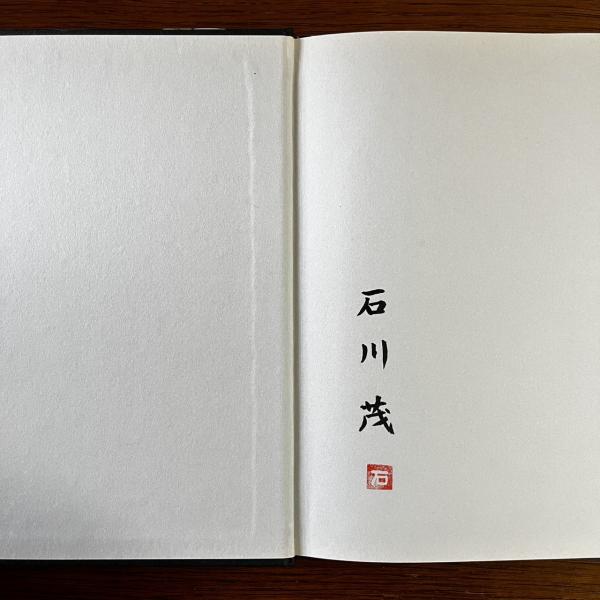 石川茂
石